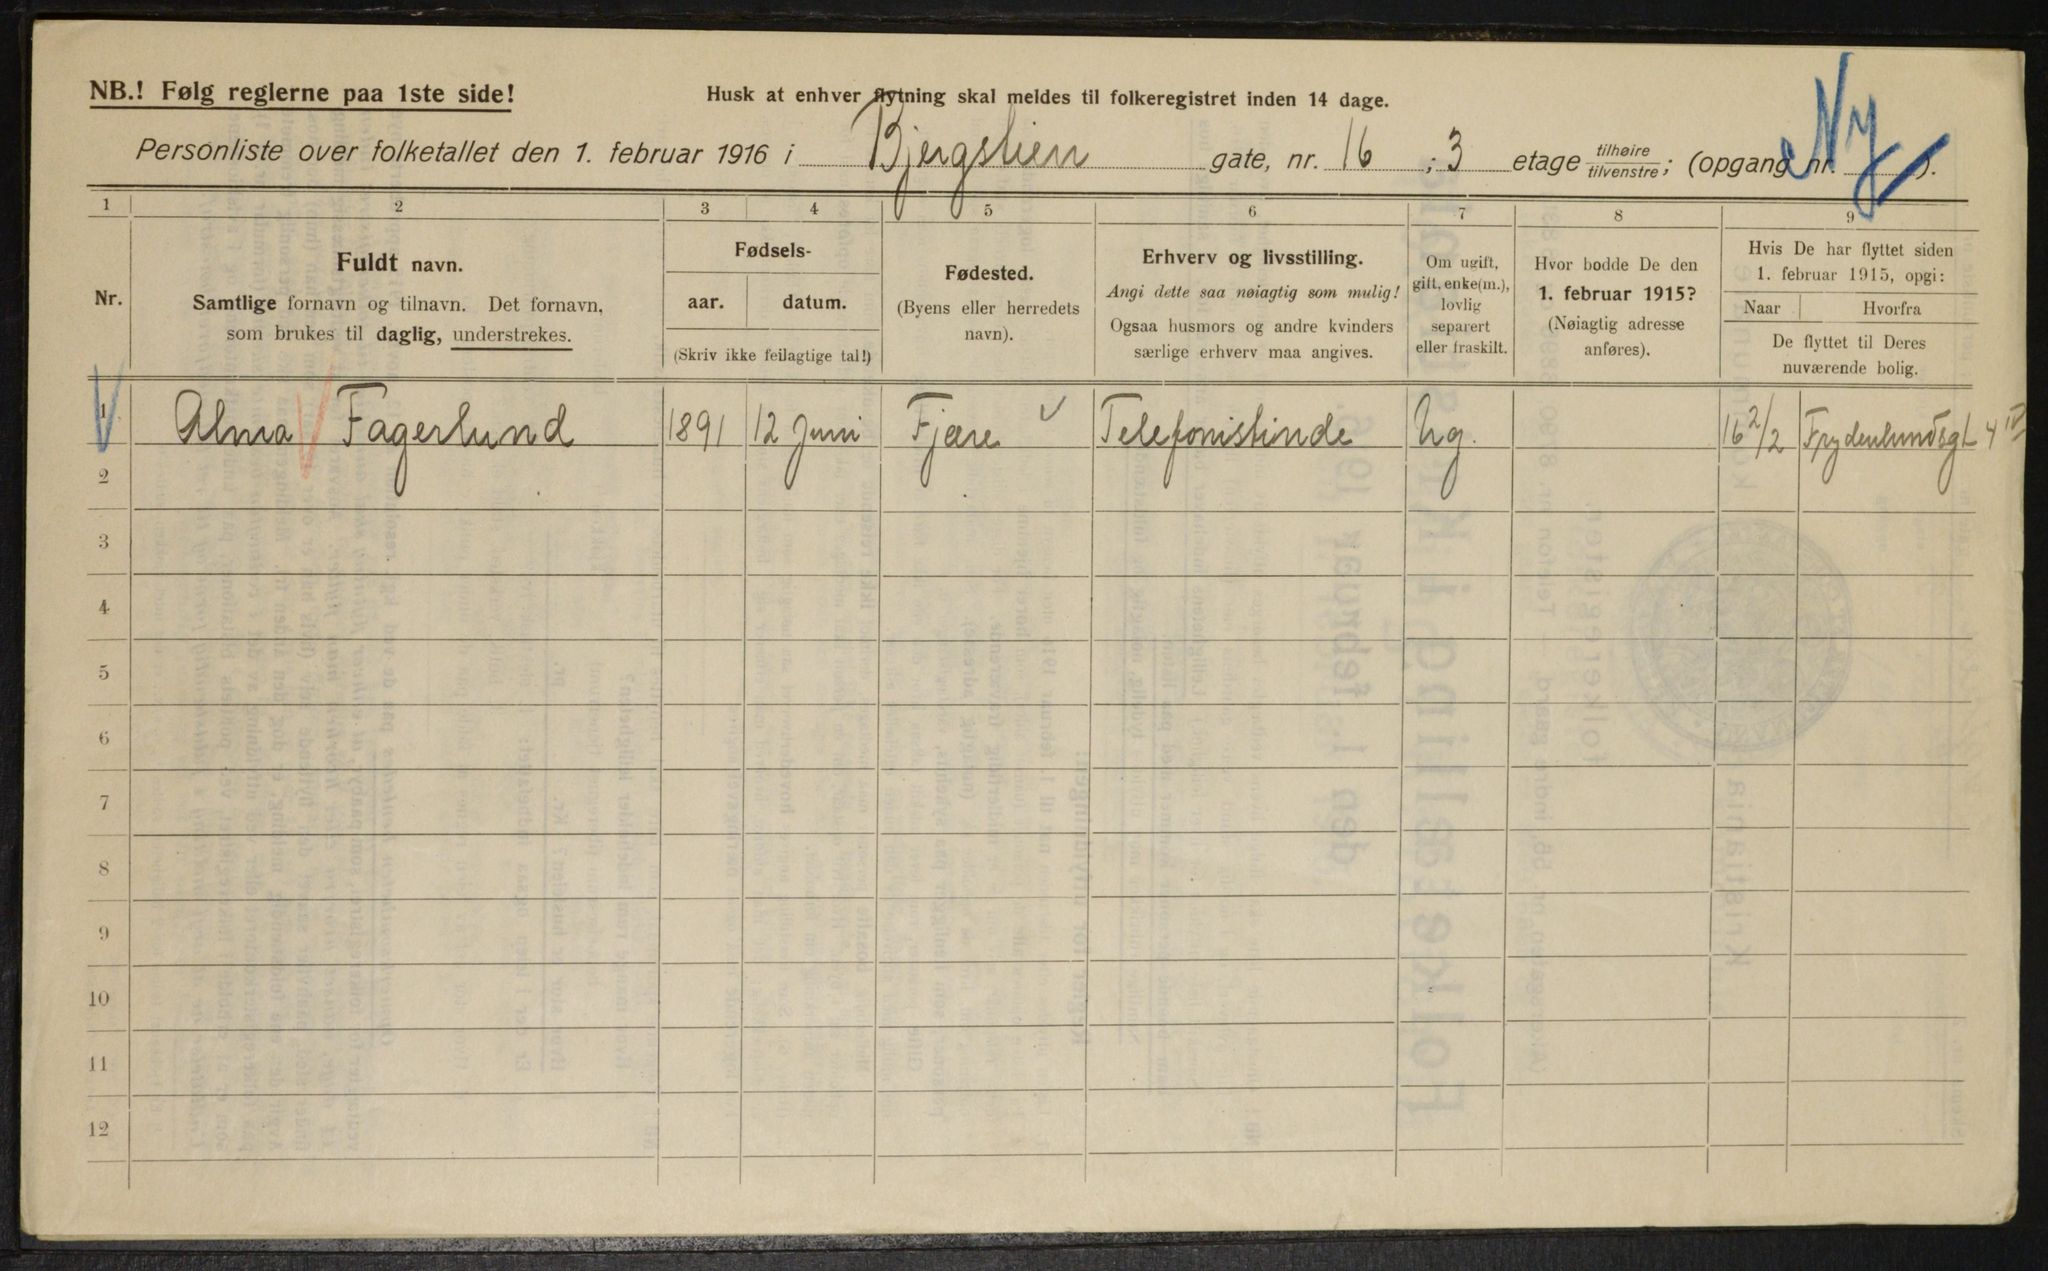 NB.! Følg reglerne paa 1ste side!
Husk at enhver flytning skal meldes til folkeregistret inden 14 dage.
Ny
Personliste over folketallet den 1. februar 1916 i Bjergslien gate, nr. 16 ; 3 etage tilhøire/tilvenstre; (opgang nr. ).
1 2 3 4 5 6 7 8 9
Nr.
Fuldt navn.
Samtlige fornavn og tilnavn. Det fornavn,
som brukes til daglig, understrekes.
Fødsels-
aar. datum.
(Skriv ikke feilagtige tal!)
Fødested.
(Byens eller herredets
navn).
Erhverv og livsstilling.
Angi dette saa nøiagtig som mulig!
Ogsaa husmors og andre kvinders
særlige erhverv maa angives.
Om ugift,
gift, enke(m.),
lovlig
separert
eller fraskilt.
Hvor bodde De den
1. februar 1915?
(Nøiagtig adresse
anføres).
Hvis De har flyttet siden
1. februar 1915, opgi:
Naar Hvorfra
De flyttet til Deres
nuværende bolig.
1 Alma Fagerlund 1891 12 Juni Fjære Telefonistinde Ug. 16 2/2 Frydenlundsgt 4 IV
2
3
4
5
6
7
8
9
10
11
12